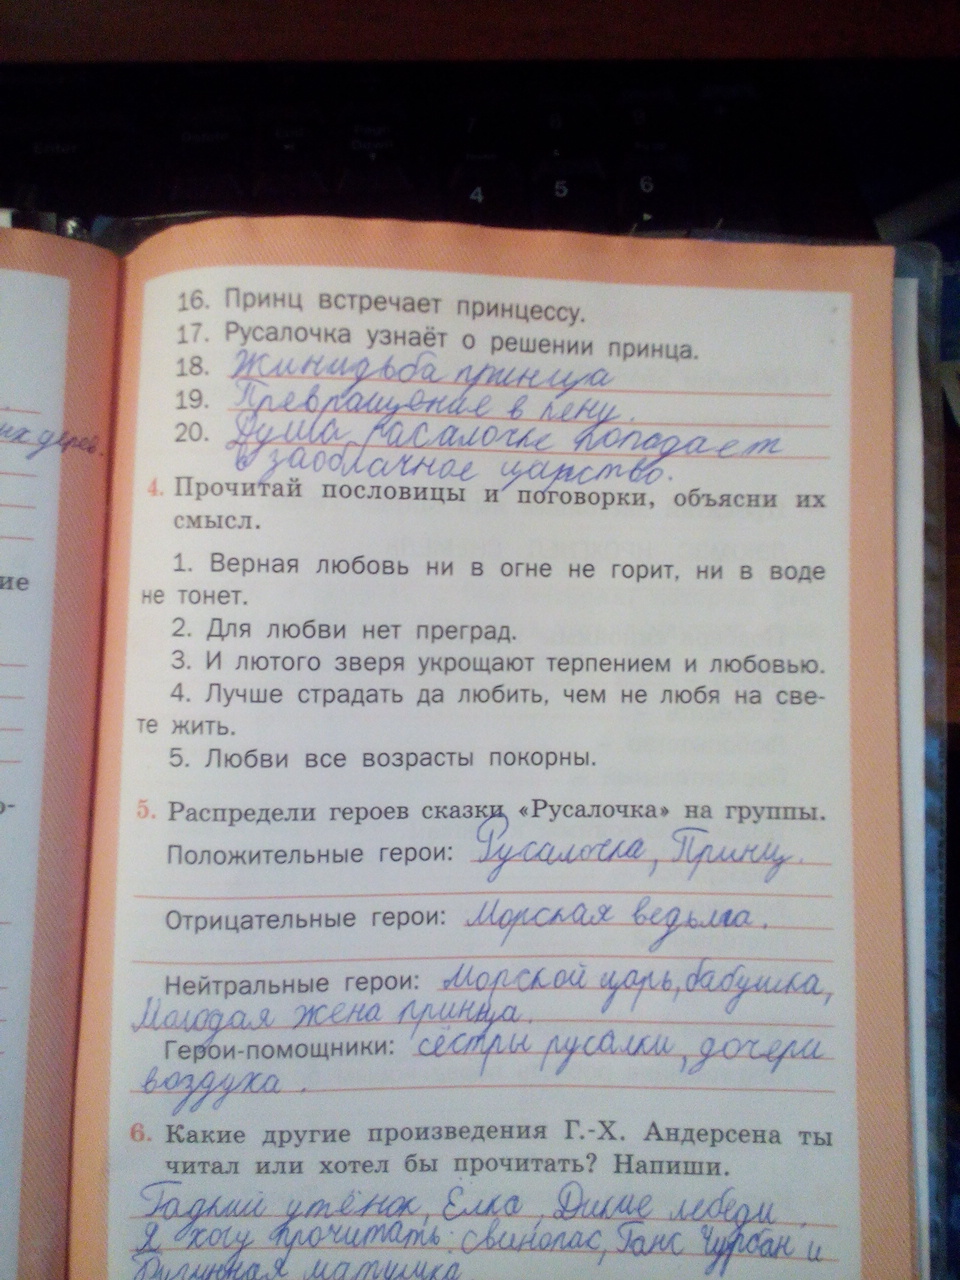 4
5
6
16. Принц встречает принцессу.
17. Русалочка узнаёт о решении принца.
18. Жинидьба принца
19. Превращение в пену.
20. Душа расалочке пападает
в заоблачное царство.
их дерев.
4. Прочитай пословицы и поговорки, объясни их
смысл.
1. Верная любовь ни в огне не горит, ни в воде
не тонет.
2. Для любви нет преград.
3. И лютого зверя укрощают терпением и любовью.
4. Лучше страдать да любить, чем не любя на све-
те жить.
5. Любви все возрасты покорны.
5. Распредели героев сказки «Русалочка» на группы.
Положительные герои: Русалочка, Принц.
Отрицательные герои: Морская ведьма.
Нейтральные герои: Морской царь, бабушка,
Молодая жена принца.
Герои-помощники: сёстры русалки, дочери
воздуха.
6. Какие другие произведения Г.-Х. Андерсена ты
читал или хотел бы прочитать? Напиши.
Гадкий утёнок, Ёлка, Дикие лебеди.
Я хочу прочитать: свинопас, Ганс Чурбан и
матушка